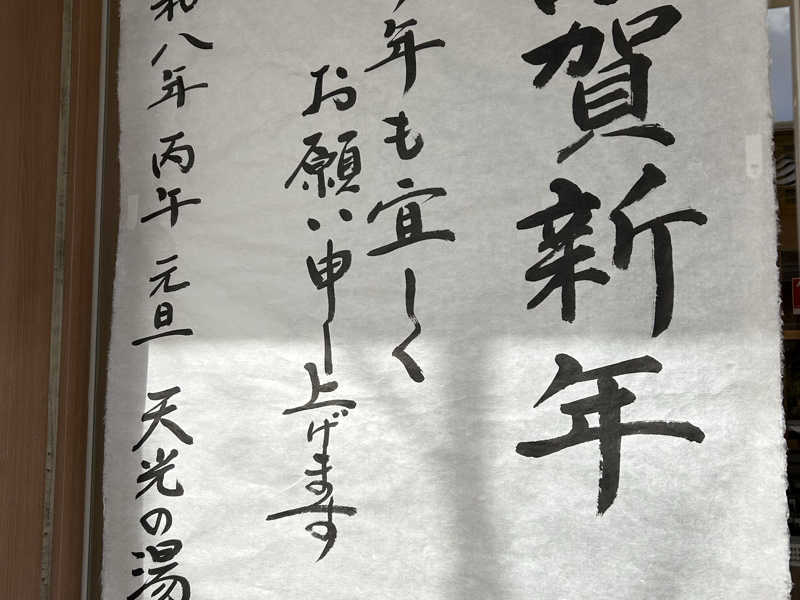 賀新年
年も宜しく
お願い申し上げます
和八年 丙午 元旦 天光の湯